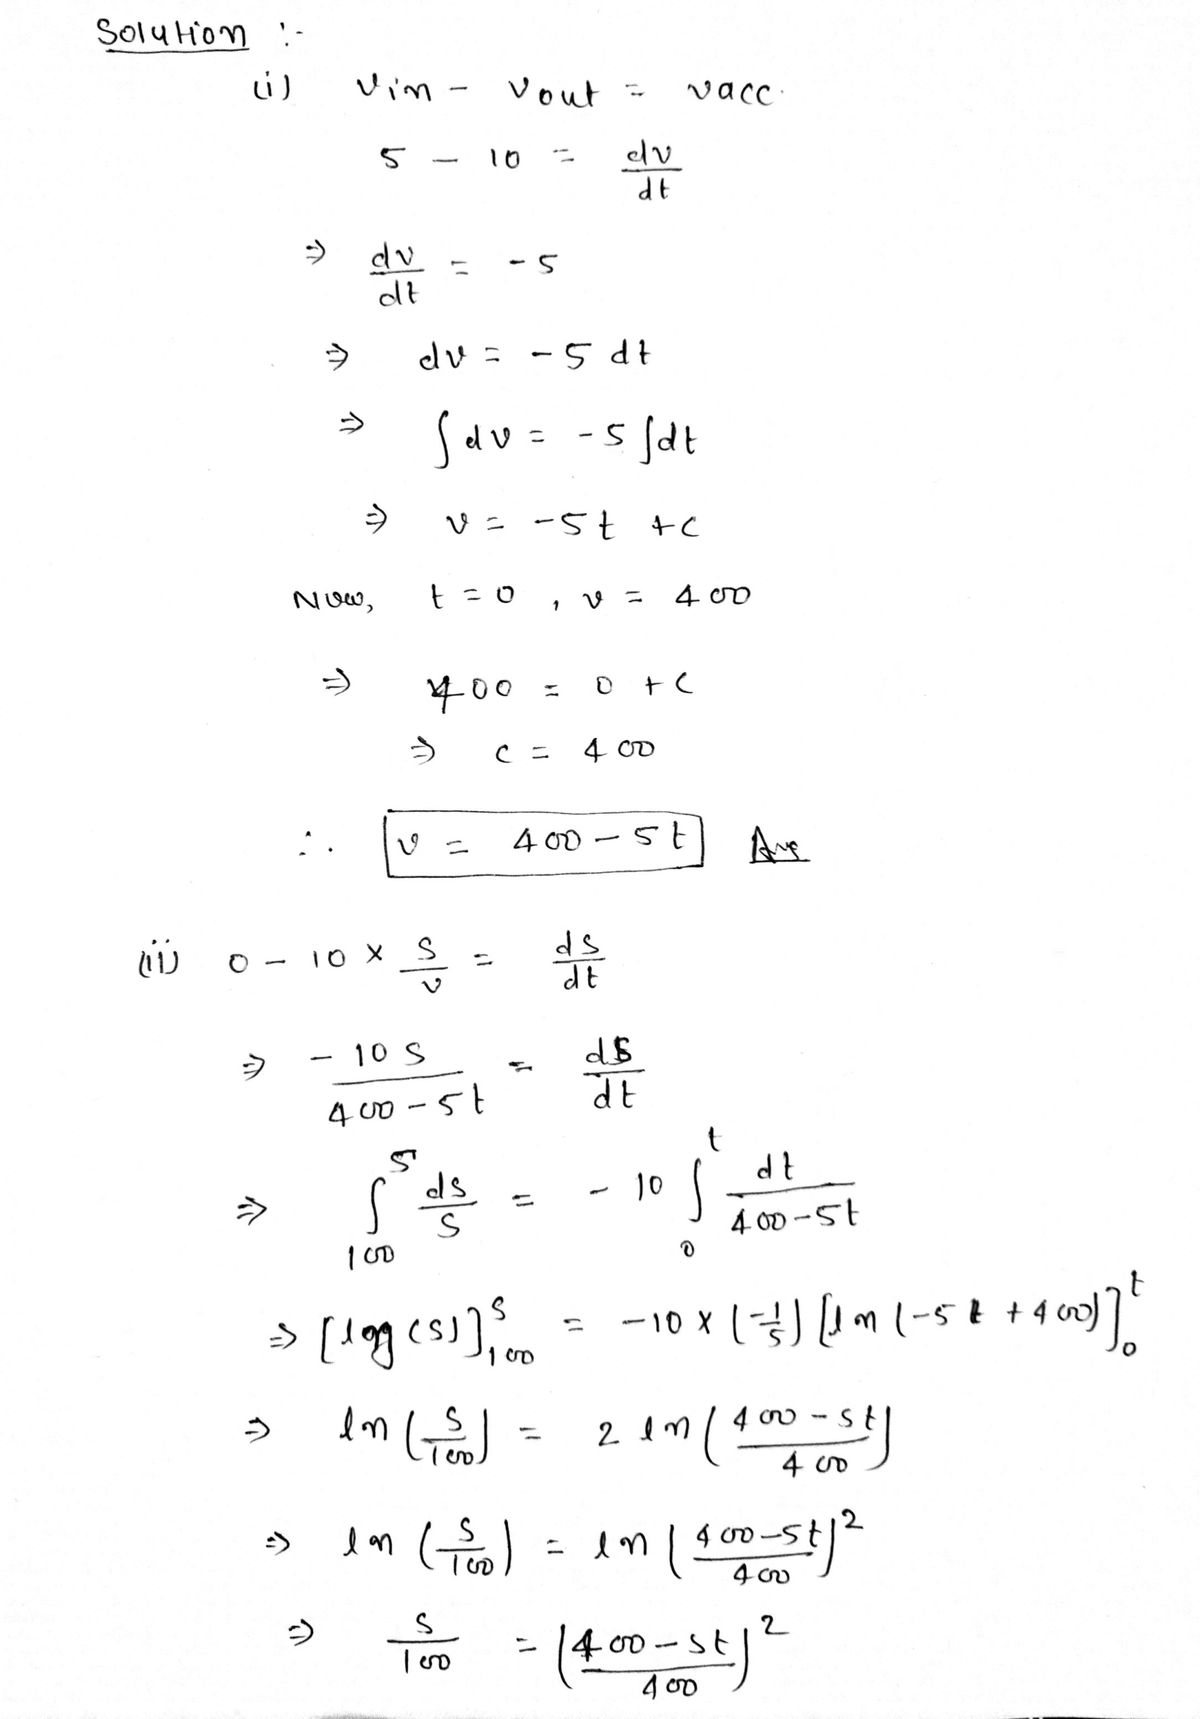 Solution :-
(i) Vin - Vout = Vacc.
5 - 10 = dv/dt
⇒ dv/dt = -5
⇒ dv = -5 dt
⇒ ∫dv = -5 ∫dt
⇒ v = -5t + c
Now, t = 0 , v = 400
⇒ 400 = 0 + c
⇒ c = 400
∴ v = 400 - 5t Ans
(ii) 0 - 10 × S/v = ds/dt
⇒ -10 S/(400 - 5t) = ds/dt
⇒ ∫_100^S ds/S = -10 ∫_0^t dt/(400-5t)
⇒ [log(s)]_100^S = -10 × (-1/5) [ln(-5t + 400)]_0^t
⇒ ln(S/100) = 2 ln((400-5t)/400)
⇒ ln(S/100) = ln((400-5t)/400)^2
⇒ S/100 = ((400-5t)/400)^2